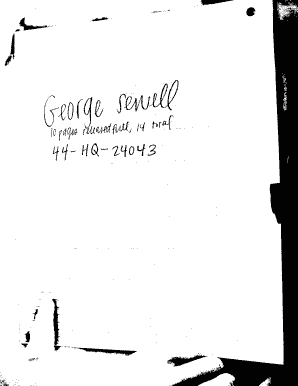 George Sewell
10 pages reviewed full, 14 total
44-HQ-24043